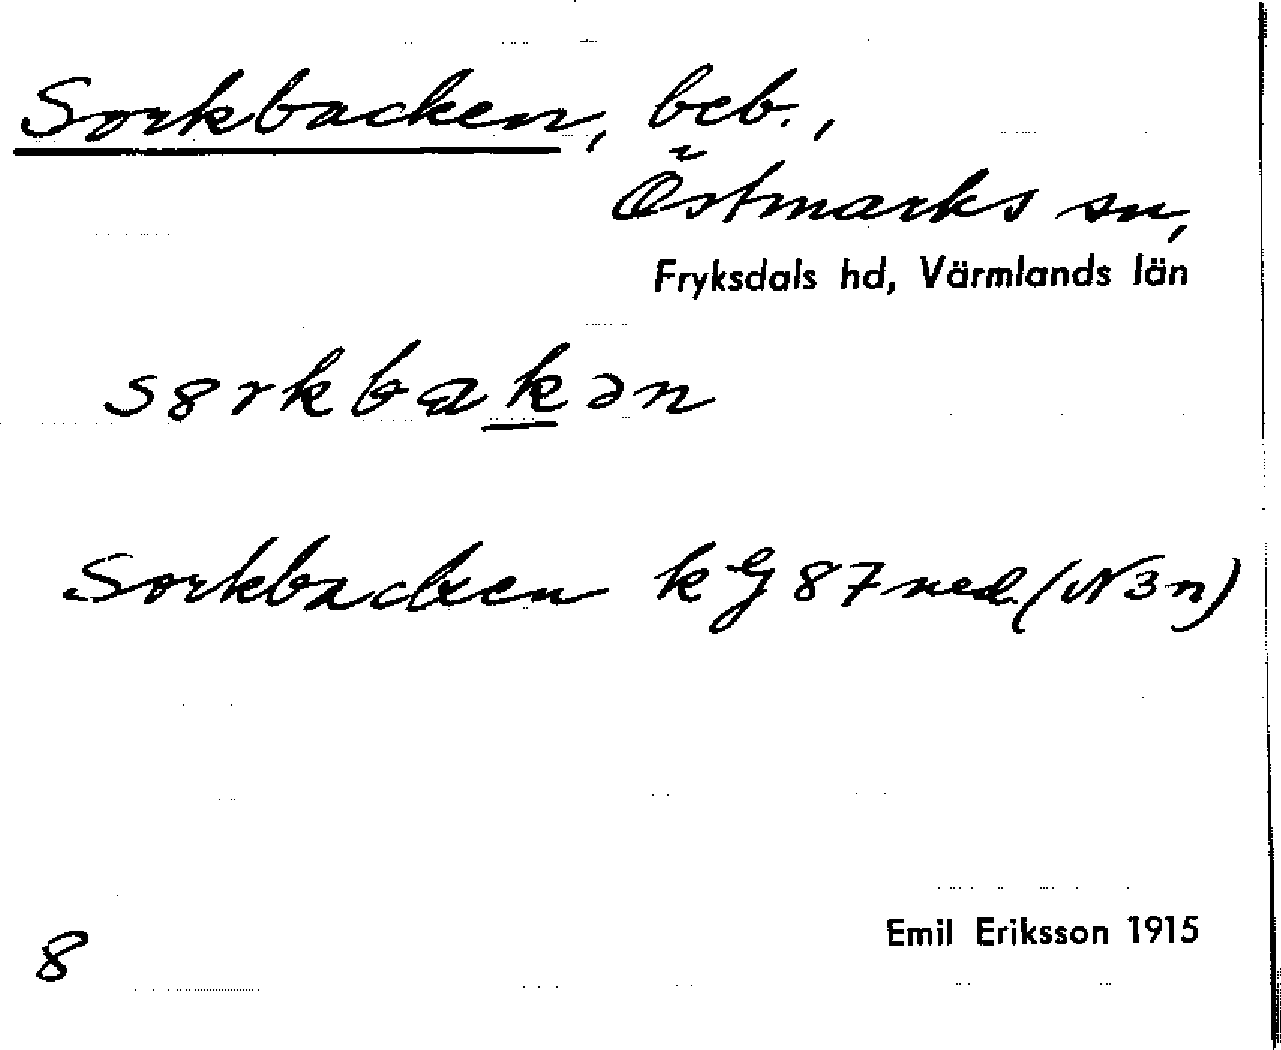 Sorkbacken, beb.,
Östmarks sn,
Fryksdals hd, Värmlands län
s8rkbakən
Sorkbacken k G 87 ned. (N3n)
Emil Eriksson 1915
8